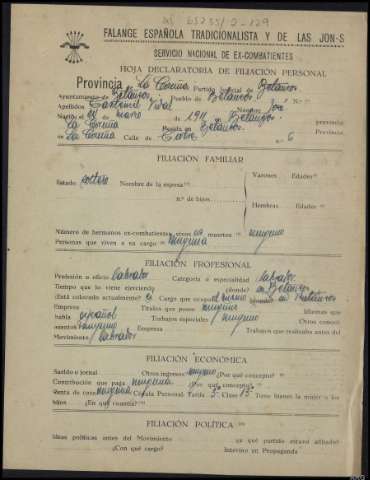 FALANGE ESPAÑOLA TRADICIONALISTA Y DE LAS JON-S
SERVICIO NACIONAL DE EX-COMBATIENTES
HOJA DECLARATORIA DE FILIACIÓN PERSONAL
Provincia La Coruña Partido Judicial de Betanzos
Ayuntamiento de Betanzos Pueblo de Betanzos N.º
Apellidos Vidal Nombre José
Nacido el de 1911 en Betanzos provincia
La Coruña Reside en Betanzos Provincia
de La Coruña Calle de 6
FILIACIÓN FAMILIAR
Estado soltero Nombre de la esposa Varones Edades
n.º de hijos
Hembras Edades
Número de hermanos ex-combatientes vivos muertos ninguno
Personas que viven a su cargo ninguna
FILIACIÓN PROFESIONAL
Profesión u oficio labrador Categoría o especialidad labrador
Tiempo que lo viene ejerciendo (donde) en Betanzos
¿Está colocado actualmente? si Cargo que ocupa el mismo (donde) en Betanzos
Empresa Títulos que posee ninguno Idiomas que
habla español Trabajos especiales ninguno Otros conoci-
mientos ninguno Empresa Trabajos que realizaba antes del
Movimiento labrador
FILIACIÓN ECONÓMICA
Sueldo o jornal Otros ingresos ninguno ¿Por qué concepto?
Contribución que paga ninguna ¿Por qué concepto?
Renta de casa ninguna Cédula Personal: Tarifa 3ª Clase 13 Tiene bienes la mujer o los
hijos ¿En qué cuantía?
FILIACIÓN POLÍTICA
Ideas políticas antes del Movimiento ¿a qué partido estuvo afiliado?
¿Con qué cargo? Intervino en Propaganda